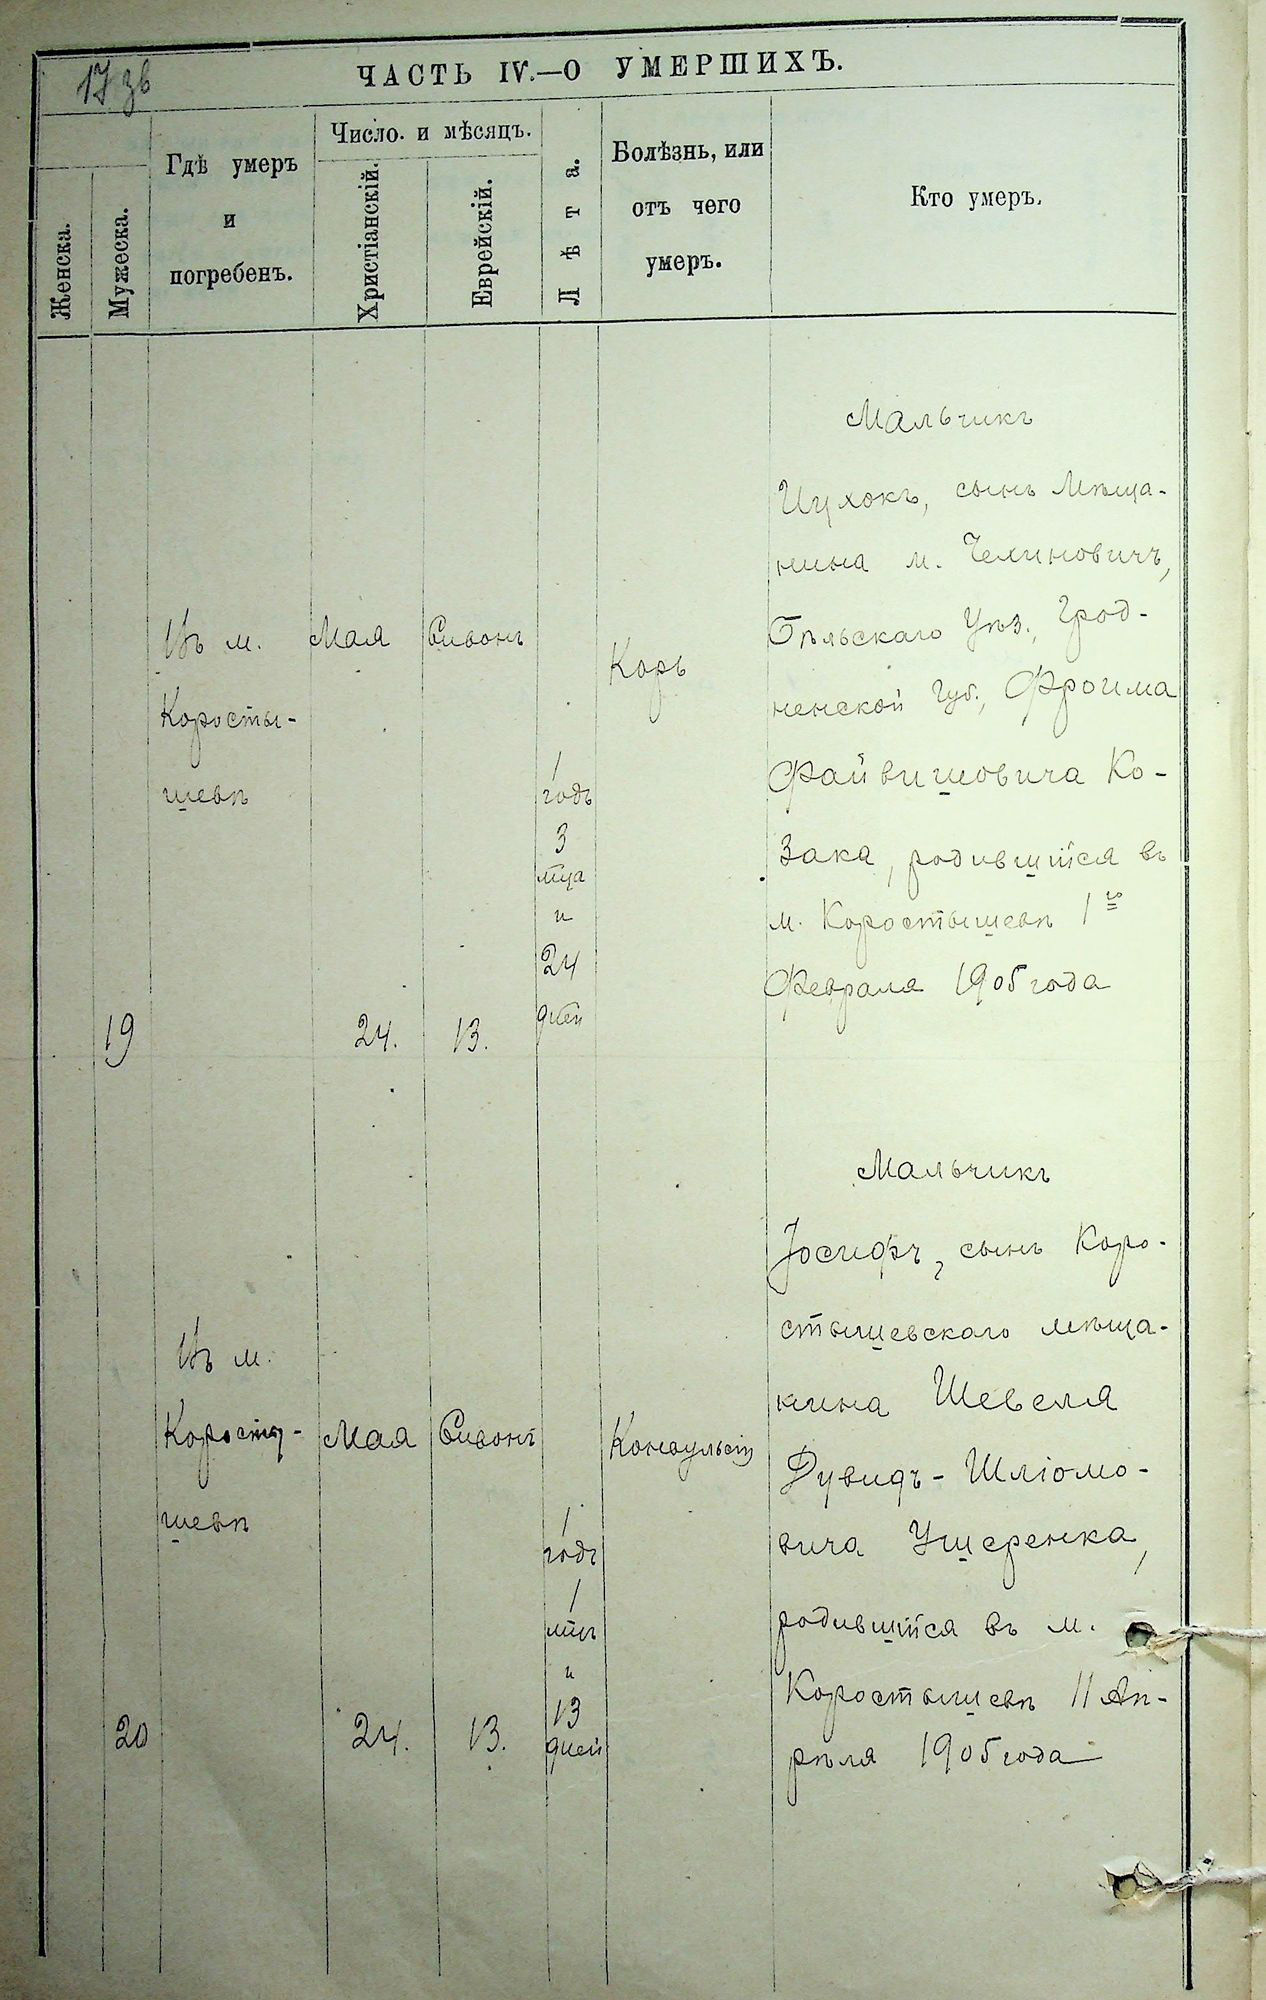 17 зв
ЧАСТЬ IV.—О УМЕРШИХЪ.
Женска.
Мужеска.
Гдѣ умеръ
и
погребенъ.
Число. и мѣсяцъ.
Христіанскій.
Еврейскій.
Лѣта.
Болѣзнь, или
отъ чего
умеръ.
Кто умеръ.
19
Въ м.
Коросты-
шевѣ
Мая
24.
Сивонъ
13.
1
годъ
3
мца
и
24
дней
Корь
Мальчикъ
Ицхокъ, сынъ мѣща-
нина м.
Бѣльскаго Уѣз., Грод-
ненской Губ., Фроима
Файвишовича Ко-
зака, родившійся въ
м. Коростышевѣ 1го
Февраля 1905 года
20
Въ м.
Коросты-
шевѣ
Мая
24.
Сивонъ
13.
1
годъ
1
мцъ
и
13
дней
Конвульсіи
Мальчикъ
Іосифъ, сынъ Коро-
стышевскаго мѣща-
нина Шевеля
Дувидъ-Шліомо-
вича Ушеренка,
родившійся въ м.
Коростышевѣ 11 Ап-
рѣля 1905 года